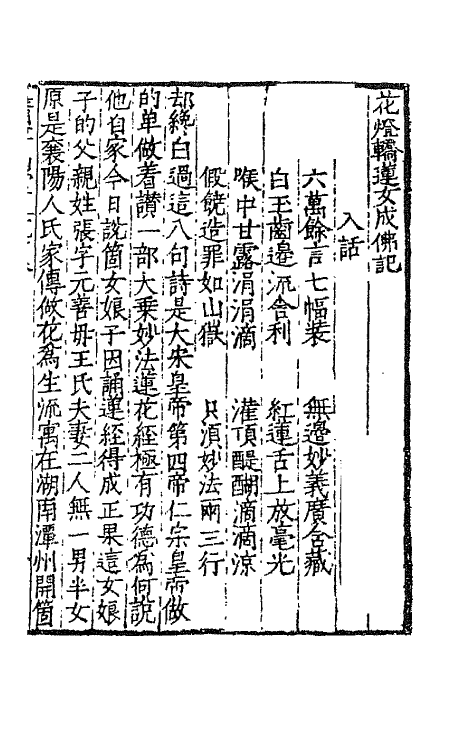 花燈轎蓮女成佛記
入話
六萬餘言七幅裝　無邊妙義廣含藏
白玉齒邊流舍利　紅蓮舌上放毫光
喉中甘露涓涓滴　灌頂醍醐滴滴凉
假饒造罪如山嶽　只湏妙法兩三行
却纔白過這八句詩是大宋皇帝第四帝仁宗皇帝做
的单做着讃一部大乗妙法蓮花經極有功德為何說
他自家今日説箇女娘子因誦蓮經得成正果這女娘
子的父親姓張字元善毋王氏夫妻二人無一男半女
原是襄陽人氏家傳做花為生流寓在湖南潭州開箇